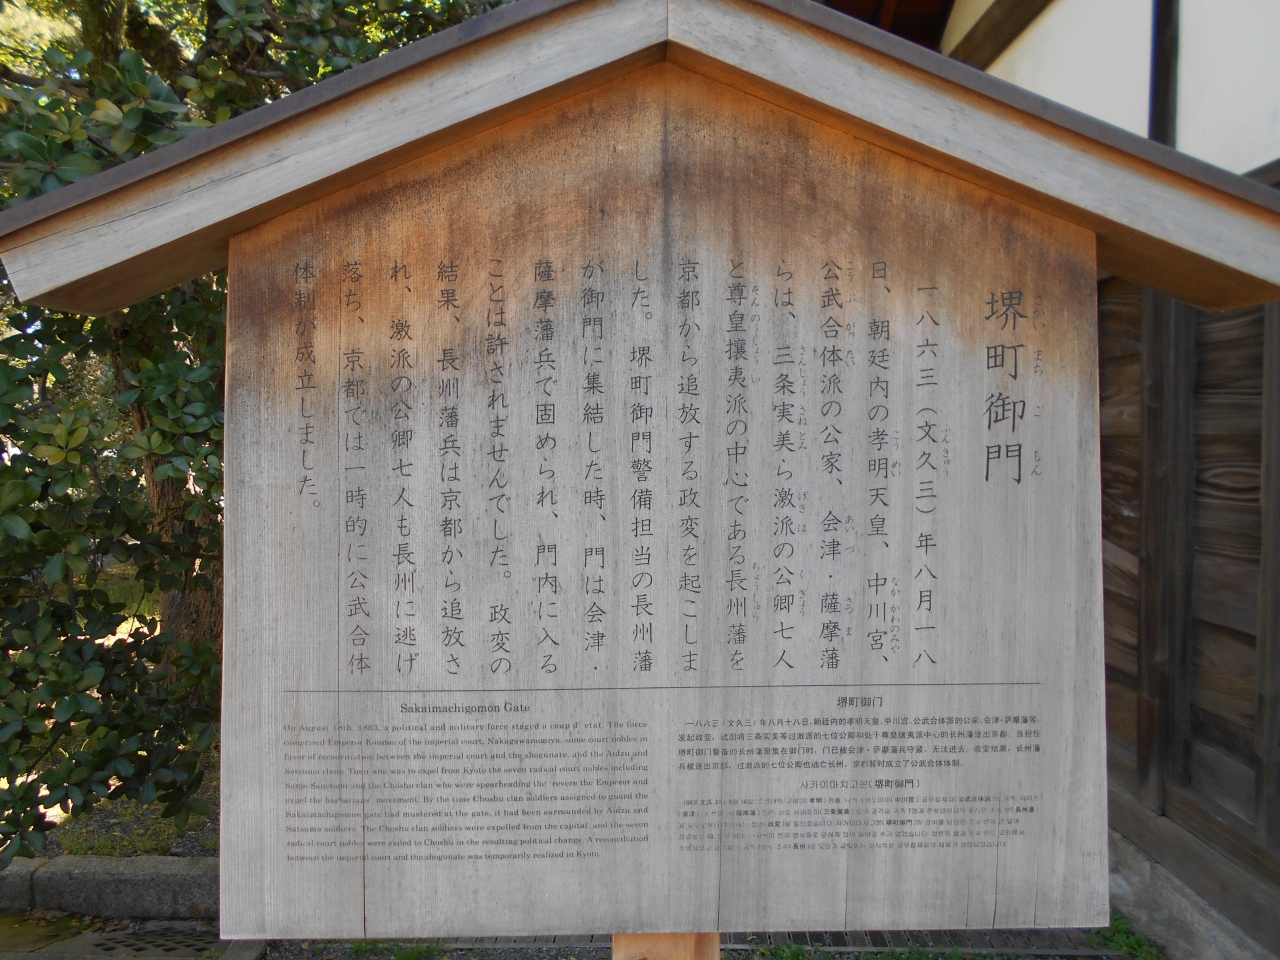 堺町御門
一八六三（文久三）年八月一八
日、朝廷内の孝明天皇、中川宮、
公武合体派の公家、会津・薩摩藩
らは、三条実美ら激派の公卿七人
と尊皇攘夷派の中心である長州藩を
京都から追放する政変を起こしま
した。堺町御門警備担当の長州藩
が御門に集結した時、門は会津・
薩摩藩兵で固められ、門内に入る
ことは許されませんでした。政変の
結果、長州藩兵は京都から追放さ
れ、激派の公卿七人も長州に逃げ
落ち、京都では一時的に公武合体
体制が成立しました。
Sakaimachigomon Gate
On August 18th, 1863, a political and military force staged a coup d' etat. The force
comprised Emperor Koumei of the imperial court, Nakagawanomiya, some court nobles in
favor of reconciliation between the imperial court and the shogunate, and the Aidzu and
Satsuma clans. Their aim was to expel from Kyoto the seven radical court nobles including
Sanjo Sanetomi and the Choshu clan who were spearheading the revere the Emperor and
expel the barbarians' movement. By the time Choshu clan soldiers assigned to guard the
Sakaimachigomon gate had mustered at the gate, it had been surrounded by Aidzu and
Satsuma soldiers. The Choshu clan soldiers were expelled from the capital, and the seven
radical court nobles were exiled to Choshu in the resulting political change. A reconciliation
between the imperial court and the shogunate was temporarily realized in Kyoto.
堺町御门
一八六三（文久三）年八月十八日，朝廷内的孝明天皇、中川宫、公武合体派的公家、会津・萨摩藩等，
发起政变，试图将三条实美等过激派的七位公卿和处于尊皇攘夷派中心的长州藩逐出京都。当担任
堺町御门警备的长州藩聚集在御门时，门已被会津・萨摩藩兵守紧，无法进去。政变结果，长州藩
兵被逐出京都，过激派的七位公卿也逃亡长州，京都暂时成立了公武合体体制。
사카이마치고몬(堺町御門)